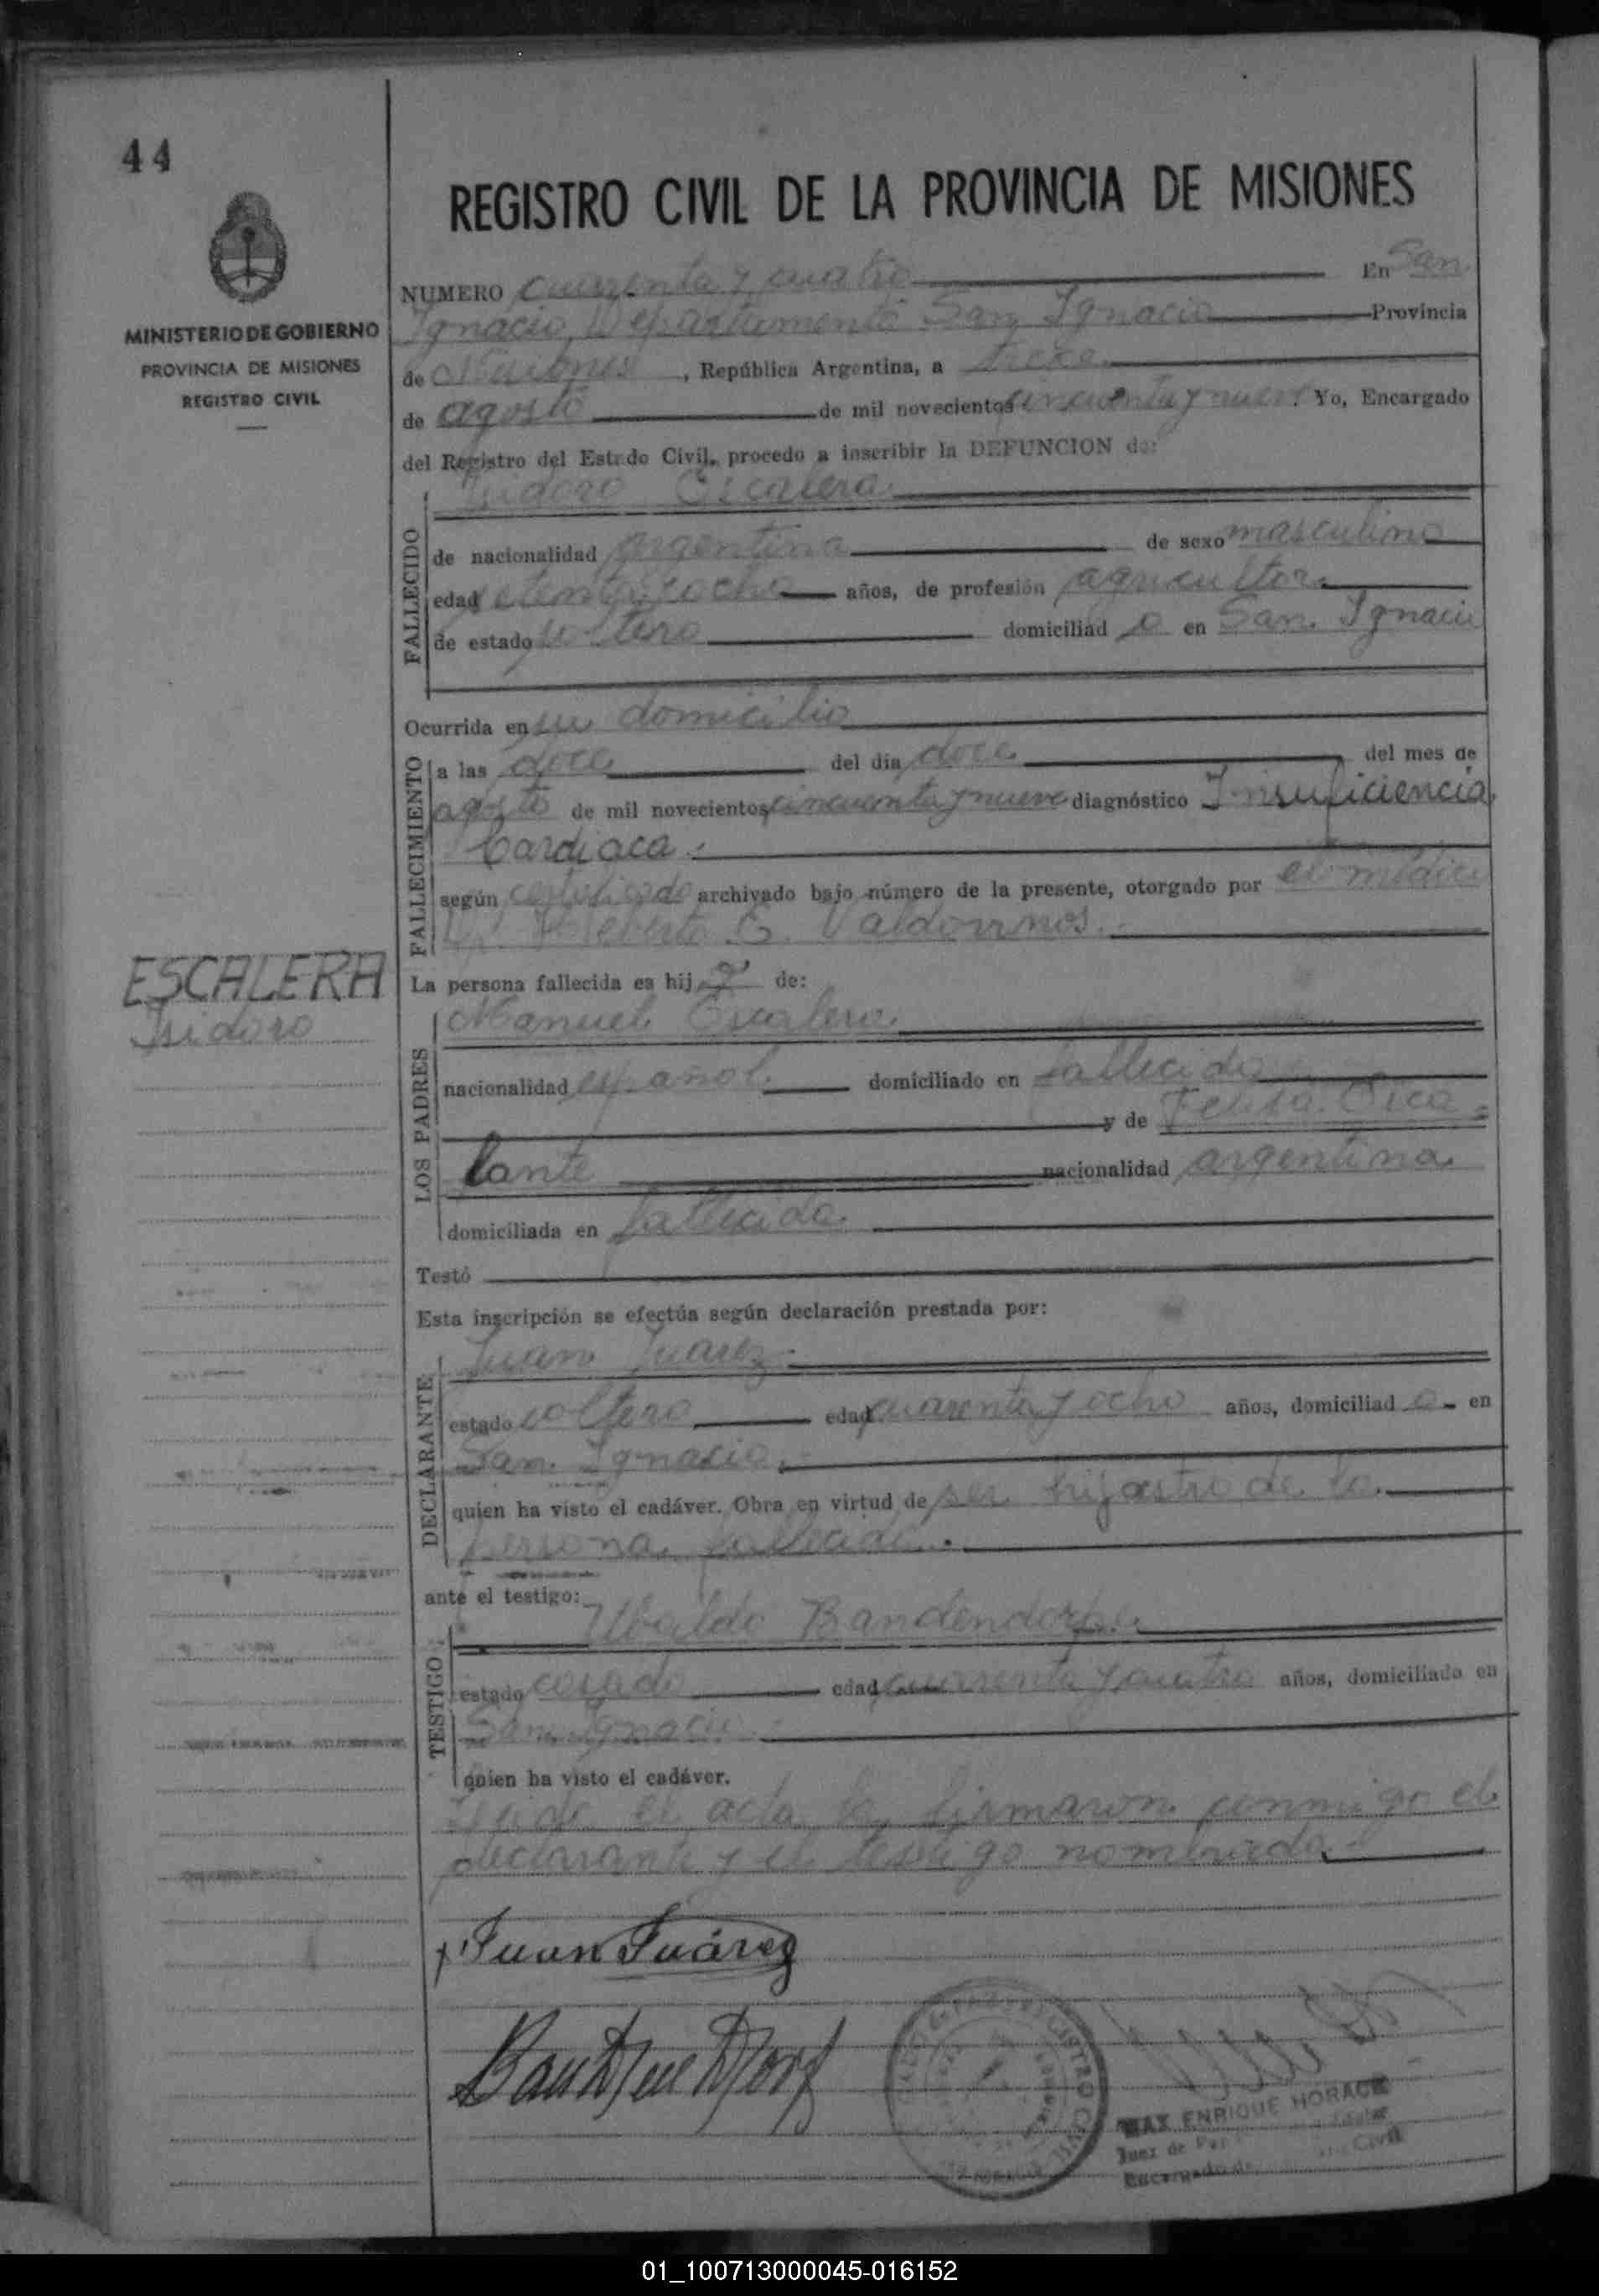 44
REGISTRO CIVIL DE LA PROVINCIA DE MISIONES
MINISTERIO DE GOBIERNO
PROVINCIA DE MISIONES
REGISTRO CIVIL
NUMERO cuarenta y cuatro En San
Ignacio, Departamento San Ignacio Provincia
de Misiones, República Argentina, a trece
de agosto de mil novecientos cincuenta y nueve. Yo, Encargado
del Registro del Estado Civil, procedo a inscribir la DEFUNCION de:
Isidoro Escalera
FALLECIDO
de nacionalidad argentina de sexo masculino
edad setenta y ocho años, de profesión agricultor
de estado soltero domiciliad o en San Ignacio
Ocurrida en su domicilio
FALLECIMIENTO
a las doce del día doce del mes de
agosto de mil novecientos cincuenta y nueve diagnóstico Insuficiencia
Cardiaca.
según certificado archivado bajo número de la presente, otorgado por el médico
Dr. E. Valdovinos.
ESCALERA
Isidoro
La persona fallecida es hij o de:
LOS PADRES
Manuel Escalera
nacionalidad español domiciliado en fallecido
y de Felisa Esca=
lante nacionalidad argentina
domiciliada en fallecida
Testó
Esta inscripción se efectúa según declaración prestada por:
DECLARANTE
Juan Juarez
estado soltero edad cuarenta y ocho años, domiciliad o en
San Ignacio
quien ha visto el cadáver. Obra en virtud de ser hijastro de la
persona fallecida.
ante el testigo:
TESTIGO
Ubaldo
estado casado edad cuarenta y cuatro años, domiciliado en
San Ignacio
quien ha visto el cadáver.
Leida el acta la firmaron conmigo el
declarante y el testigo nombrado.
Juan Juárez
MAX ENRIQUE HORACE
Juez de Paz Titular
Encargado de Civil
01_100713000045-016152